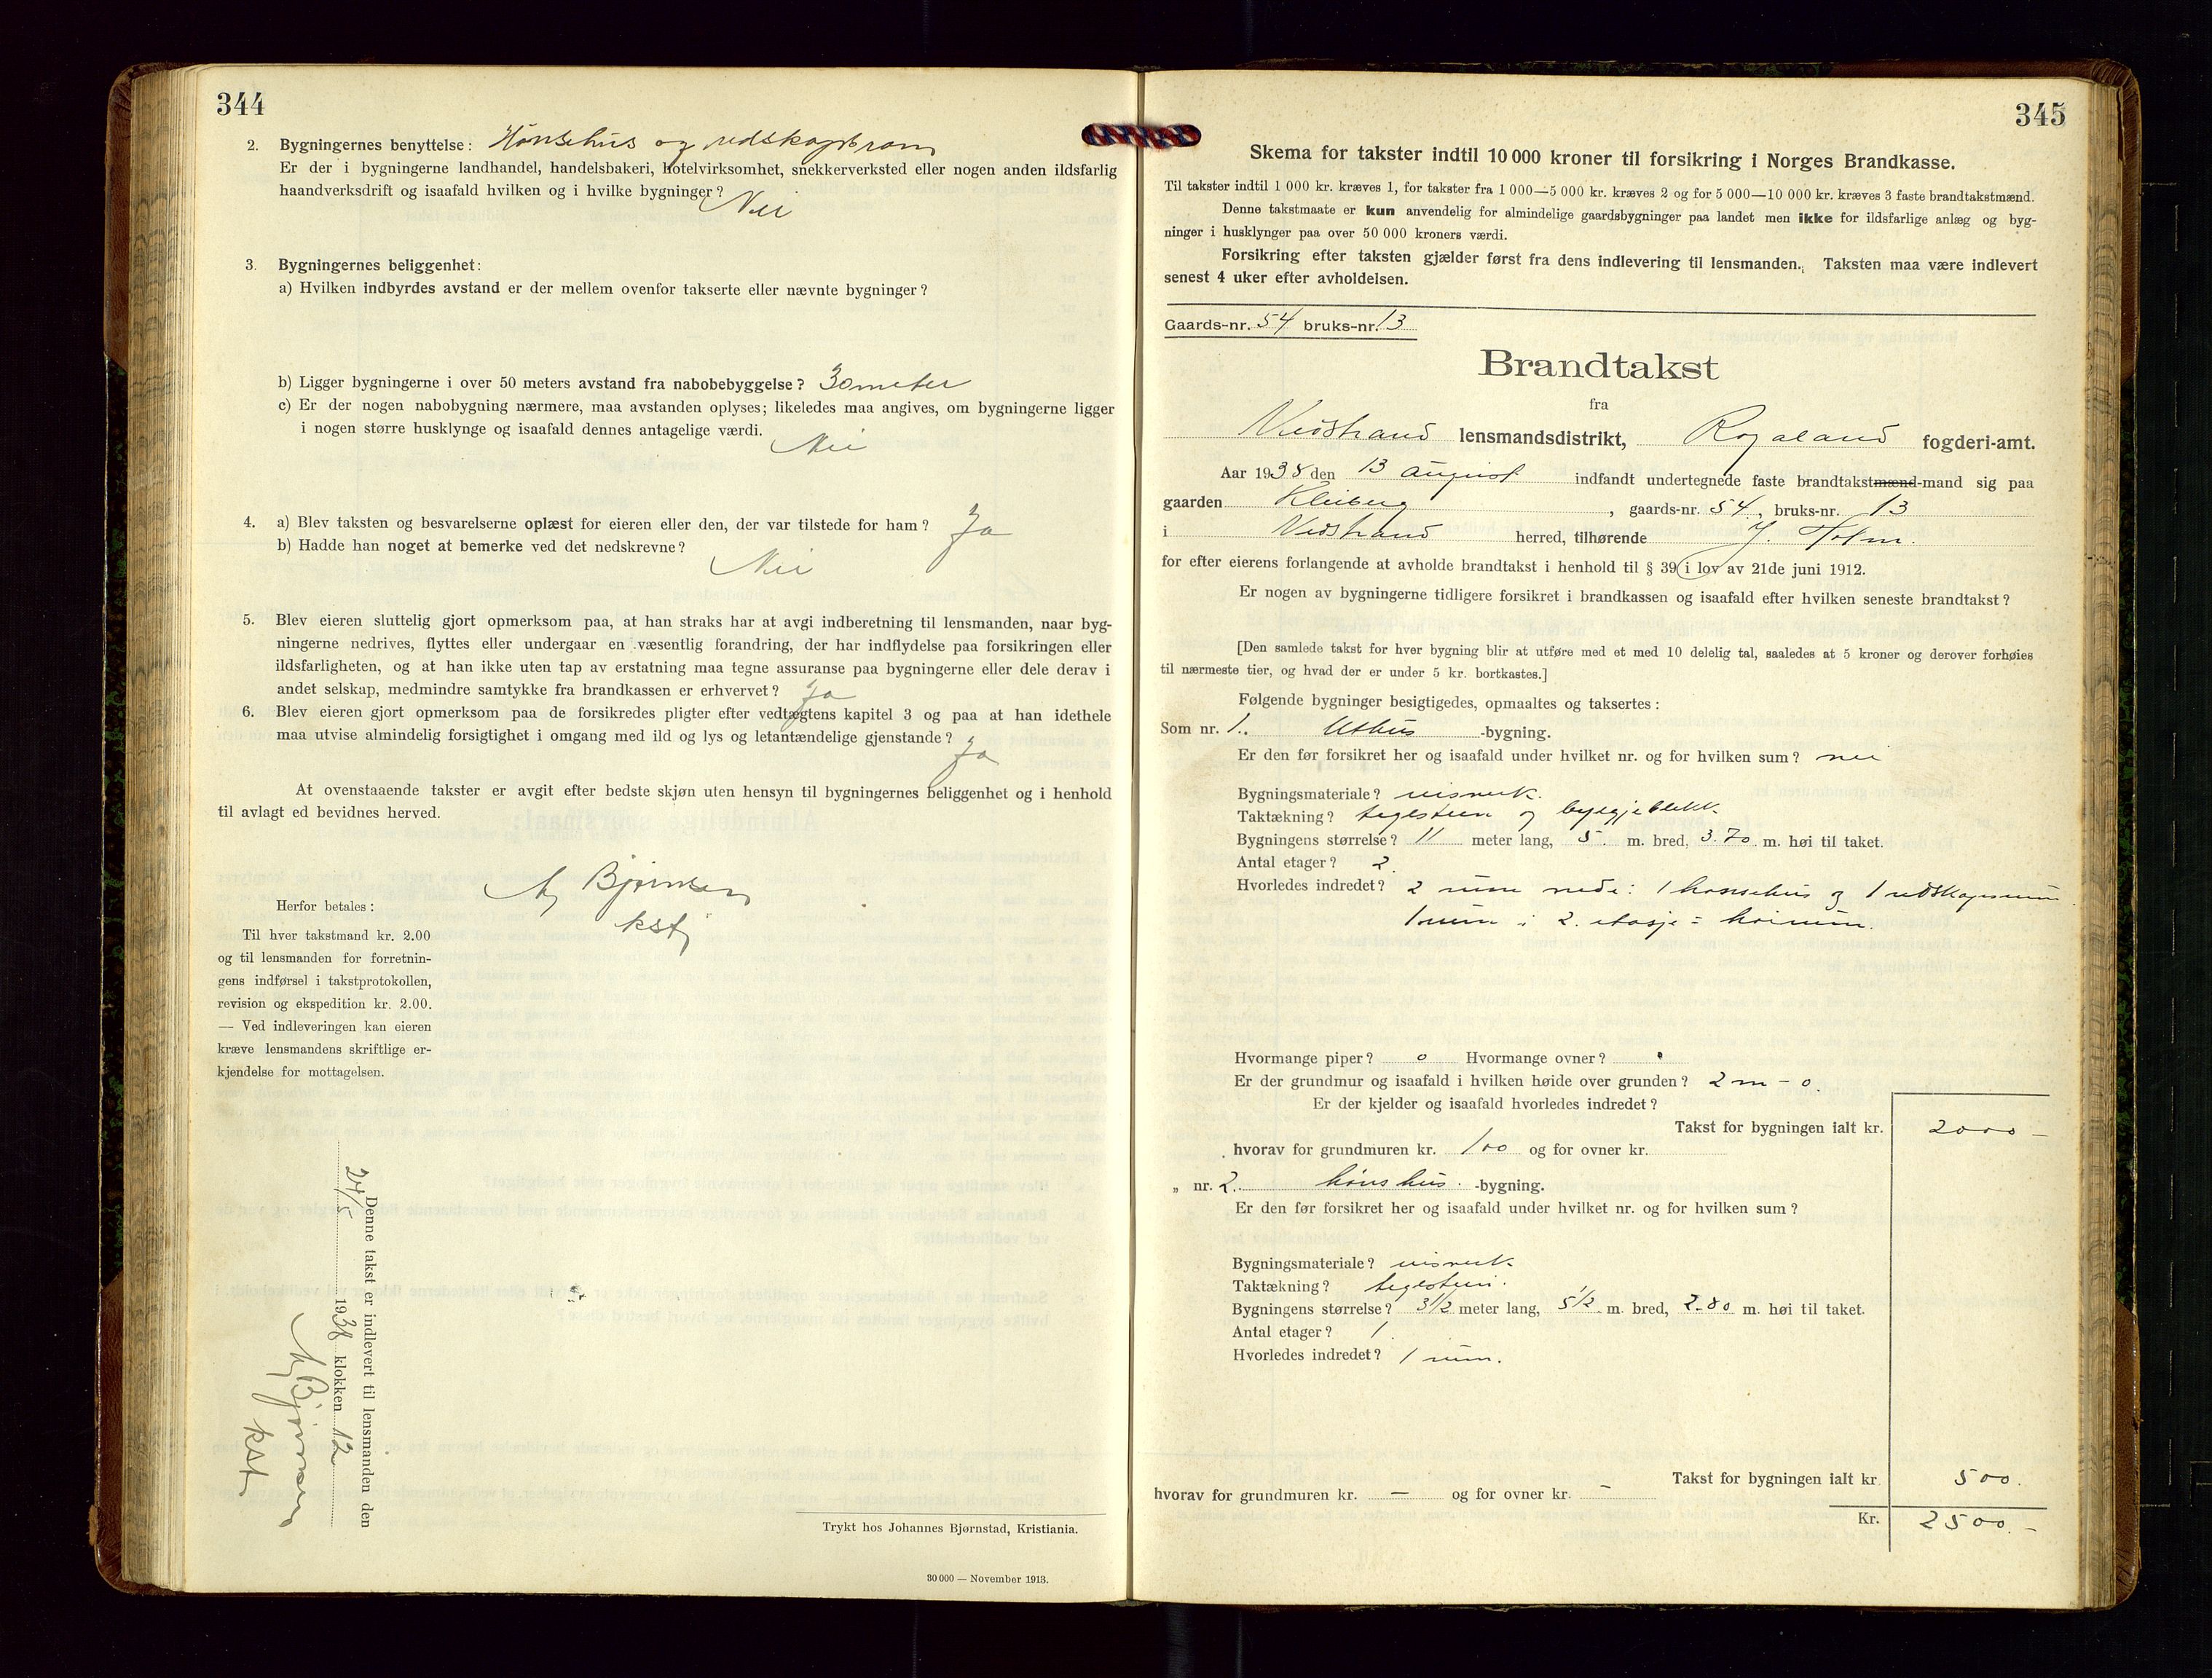 344
2. Bygningernes benyttelse: Hönsehus og redskapsrom
Er der i bygningerne landhandel, handelsbakeri, hotelvirksomhet, snekkerverksted eller nogen anden ildsfarlig
haandverksdrift og isaafald hvilken og i hvilke bygninger? Nei
3. Bygningernes beliggenhet:
a) Hvilken indbyrdes avstand er der mellem ovenfor takserte eller nævnte bygninger?
b) Ligger bygningerne i over 50 meters avstand fra nabobebyggelse? 30 meter
c) Er der nogen nabobygning nærmere, maa avstanden oplyses; likeledes maa angives, om bygningerne ligger
i nogen større husklynge og isaafald dennes antagelige værdi. Nei
4. a) Blev taksten og besvarelserne oplæst for eieren eller den, der var tilstede for ham? Ja
b) Hadde han noget at bemerke ved det nedskrevne? Nei
5. Blev eieren sluttelig gjort opmerksom paa, at han straks har at avgi indberetning til lensmanden, naar byg-
ningerne nedrives, flyttes eller undergaar en væsentlig forandring, der har indflydelse paa forsikringen eller
ildsfarligheten, og at han ikke uten tap av erstatning maa tegne assuranse paa bygningerne eller dele derav i
andet selskap, medmindre samtykke fra brandkassen er erhvervet? Ja
6. Blev eieren gjort opmerksom paa de forsikredes pligter efter vedtægtens kapitel 3 og paa at han idethele
maa utvise almindelig forsigtighet i omgang med ild og lys og letantændelige gjenstande? Ja
At ovenstaaende takster er avgit efter bedste skjøn uten hensyn til bygningernes beliggenhet og i henhold
til avlagt ed bevidnes herved.
Bjørnsen
kst
Herfor betales:
Til hver takstmand kr. 2.00
og til lensmanden for forretnin-
gens indførsel i takstprotokollen,
revision og ekspedition kr. 2.00.
— Ved indleveringen kan eieren
kræve lensmandens skriftlige er-
kjendelse for mottagelsen.
Denne takst er indlevert til lensmanden den
24/5 1938 klokken 12
Bjørnsen
kst
Trykt hos Johannes Bjørnstad, Kristiania.
30000 — November 1913.
345
Skema for takster indtil 10000 kroner til forsikring i Norges Brandkasse.
Til takster indtil 1 000 kr. kræves 1, for takster fra 1 000—5 000 kr. kræves 2 og for 5 000—10 000 kr. kræves 3 faste brandtakstmænd.
Denne takstmaate er kun anvendelig for almindelige gaardsbygninger paa landet men ikke for ildsfarlige anlæg og byg-
ninger i husklynger paa over 50 000 kroners værdi.
Forsikring efter taksten gjælder først fra dens indlevering til lensmanden. Taksten maa være indlevert
senest 4 uker efter avholdelsen.
Gaards-nr. 54 bruks-nr. 13
Brandtakst
fra
Nedstrand lensmandsdistrikt, Rogaland fogderi-amt.
Aar 1938 den 13 august indfandt undertegnede faste brandtakstmænd-mand sig paa
gaarden Kleiberg, gaards-nr. 54, bruks-nr. 13
i Nedstrand herred, tilhørende J. Holm.
for efter eierens forlangende at avholde brandtakst i henhold til § 39 i lov av 21de juni 1912.
Er nogen av bygningerne tidligere forsikret i brandkassen og isaafald efter hvilken seneste brandtakst?
[Den samlede takst for hver bygning blir at utføre med et med 10 delelig tal, saaledes at 5 kroner og derover forhøies
til nærmeste tier, og hvad der er under 5 kr. bortkastes.]
Følgende bygninger besigtigedes, opmaaltes og taksertes:
Som nr. 1. Uthus -bygning.
Er den før forsikret her og isaafald under hvilket nr. og for hvilken sum? nei
Bygningsmateriale? reisverk.
Taktækning? teglsteen og bylgjeblekk
Bygningens størrelse? 11 meter lang, 5. m. bred, 3.70 m. høi til taket.
Antal etager? 2.
Hvorledes indredet? 2 rum nede: 1 hønsehus og 1 redskapsrum
1 rum i 2. etasje = høirum.
Hvormange piper? 0 Hvormange ovner? 0
Er der grundmur og isaafald i hvilken høide over grunden? 2 m - 0.
Er der kjelder og isaafald hvorledes indredet?
Takst for bygningen ialt kr. 2000 -
hvorav for grundmuren kr. 100 og for ovner kr.
„ nr. 2. hønshus. -bygning.
Er den før forsikret her og isaafald under hvilket nr. og for hvilken sum?
Bygningsmateriale? reisverk
Taktækning? teglstein.
Bygningens størrelse? 3 1/2 meter lang, 5 1/2 m. bred, 2.80 m. høi til taket.
Antal etager? 1
Hvorledes indredet? 1 rum.
Takst for bygningen ialt kr 500.
hvorav for grundmuren kr. — og for ovner kr. -
Kr. 2500.-